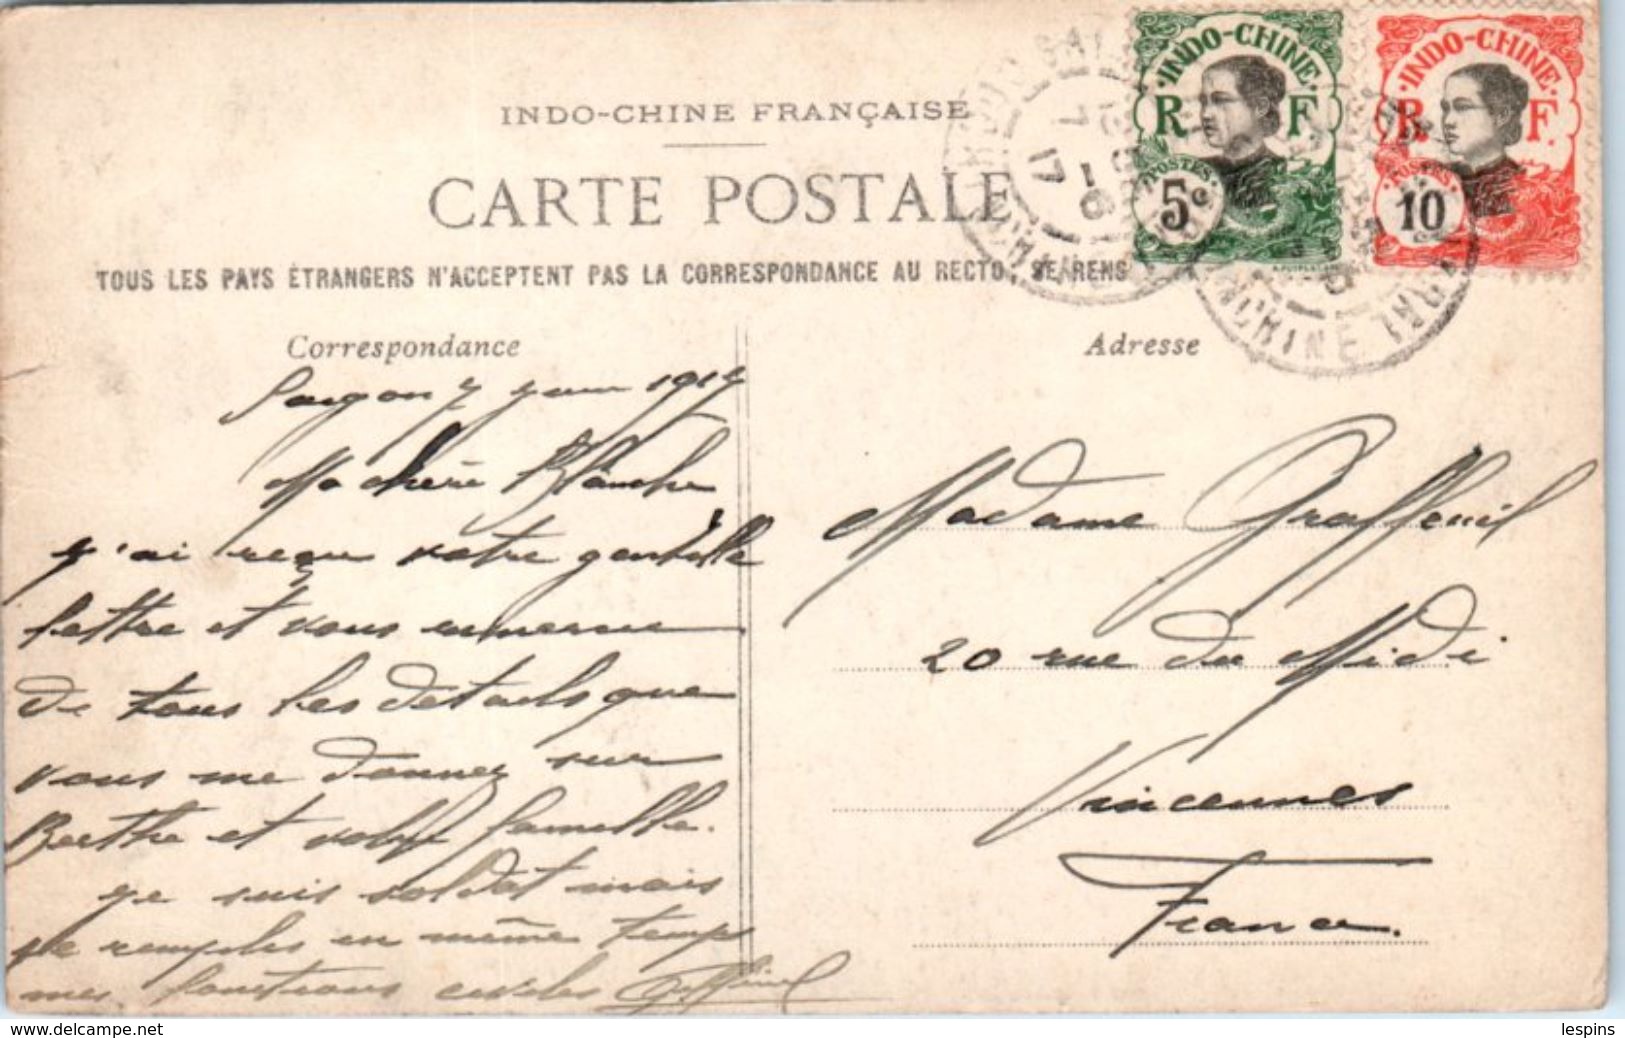 INDO-CHINE FRANÇAISE
CARTE POSTALE
TOUS LES PAYS ÉTRANGERS N'ACCEPTENT PAS LA CORRESPONDANCE AU RECTO; SE RENS
Correspondance
Saigon 7 juin 1917
Ma chère Blanche
j'ai reçu votre gentille
lettre et vous remercie
de tous les details que
vous me donnez sur
Berthe et votre famille.
je suis soldat mais
je remplis en même temps
mes fonctions civiles Graffeuil
Adresse
Madame Graffeuil
20 rue du Midi
Vincennes
France.
INDO-CHINE
R F
POSTES
5c
INDO-CHINE
R F
POSTES
10
17
INDO-CHINE
delcampe.net
lespins